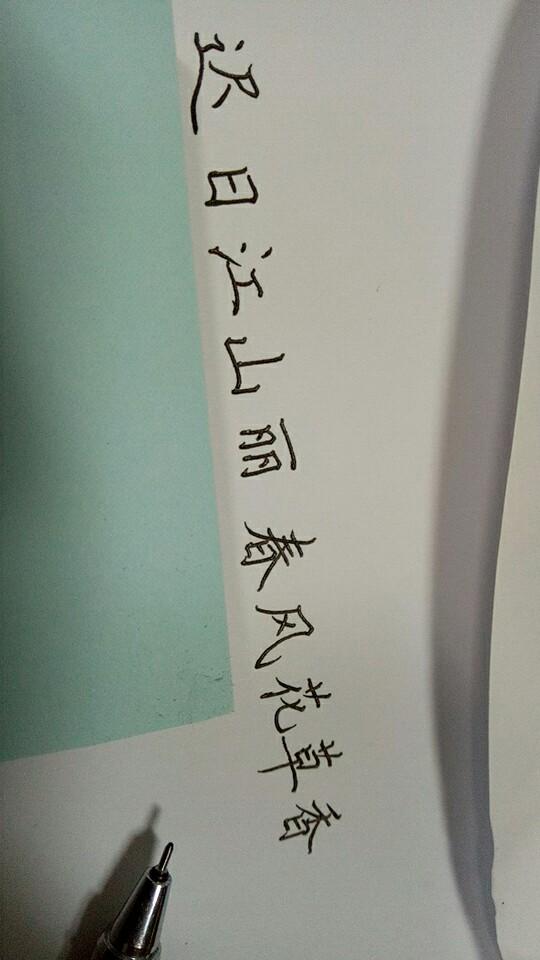 迟日江山丽春风花草香